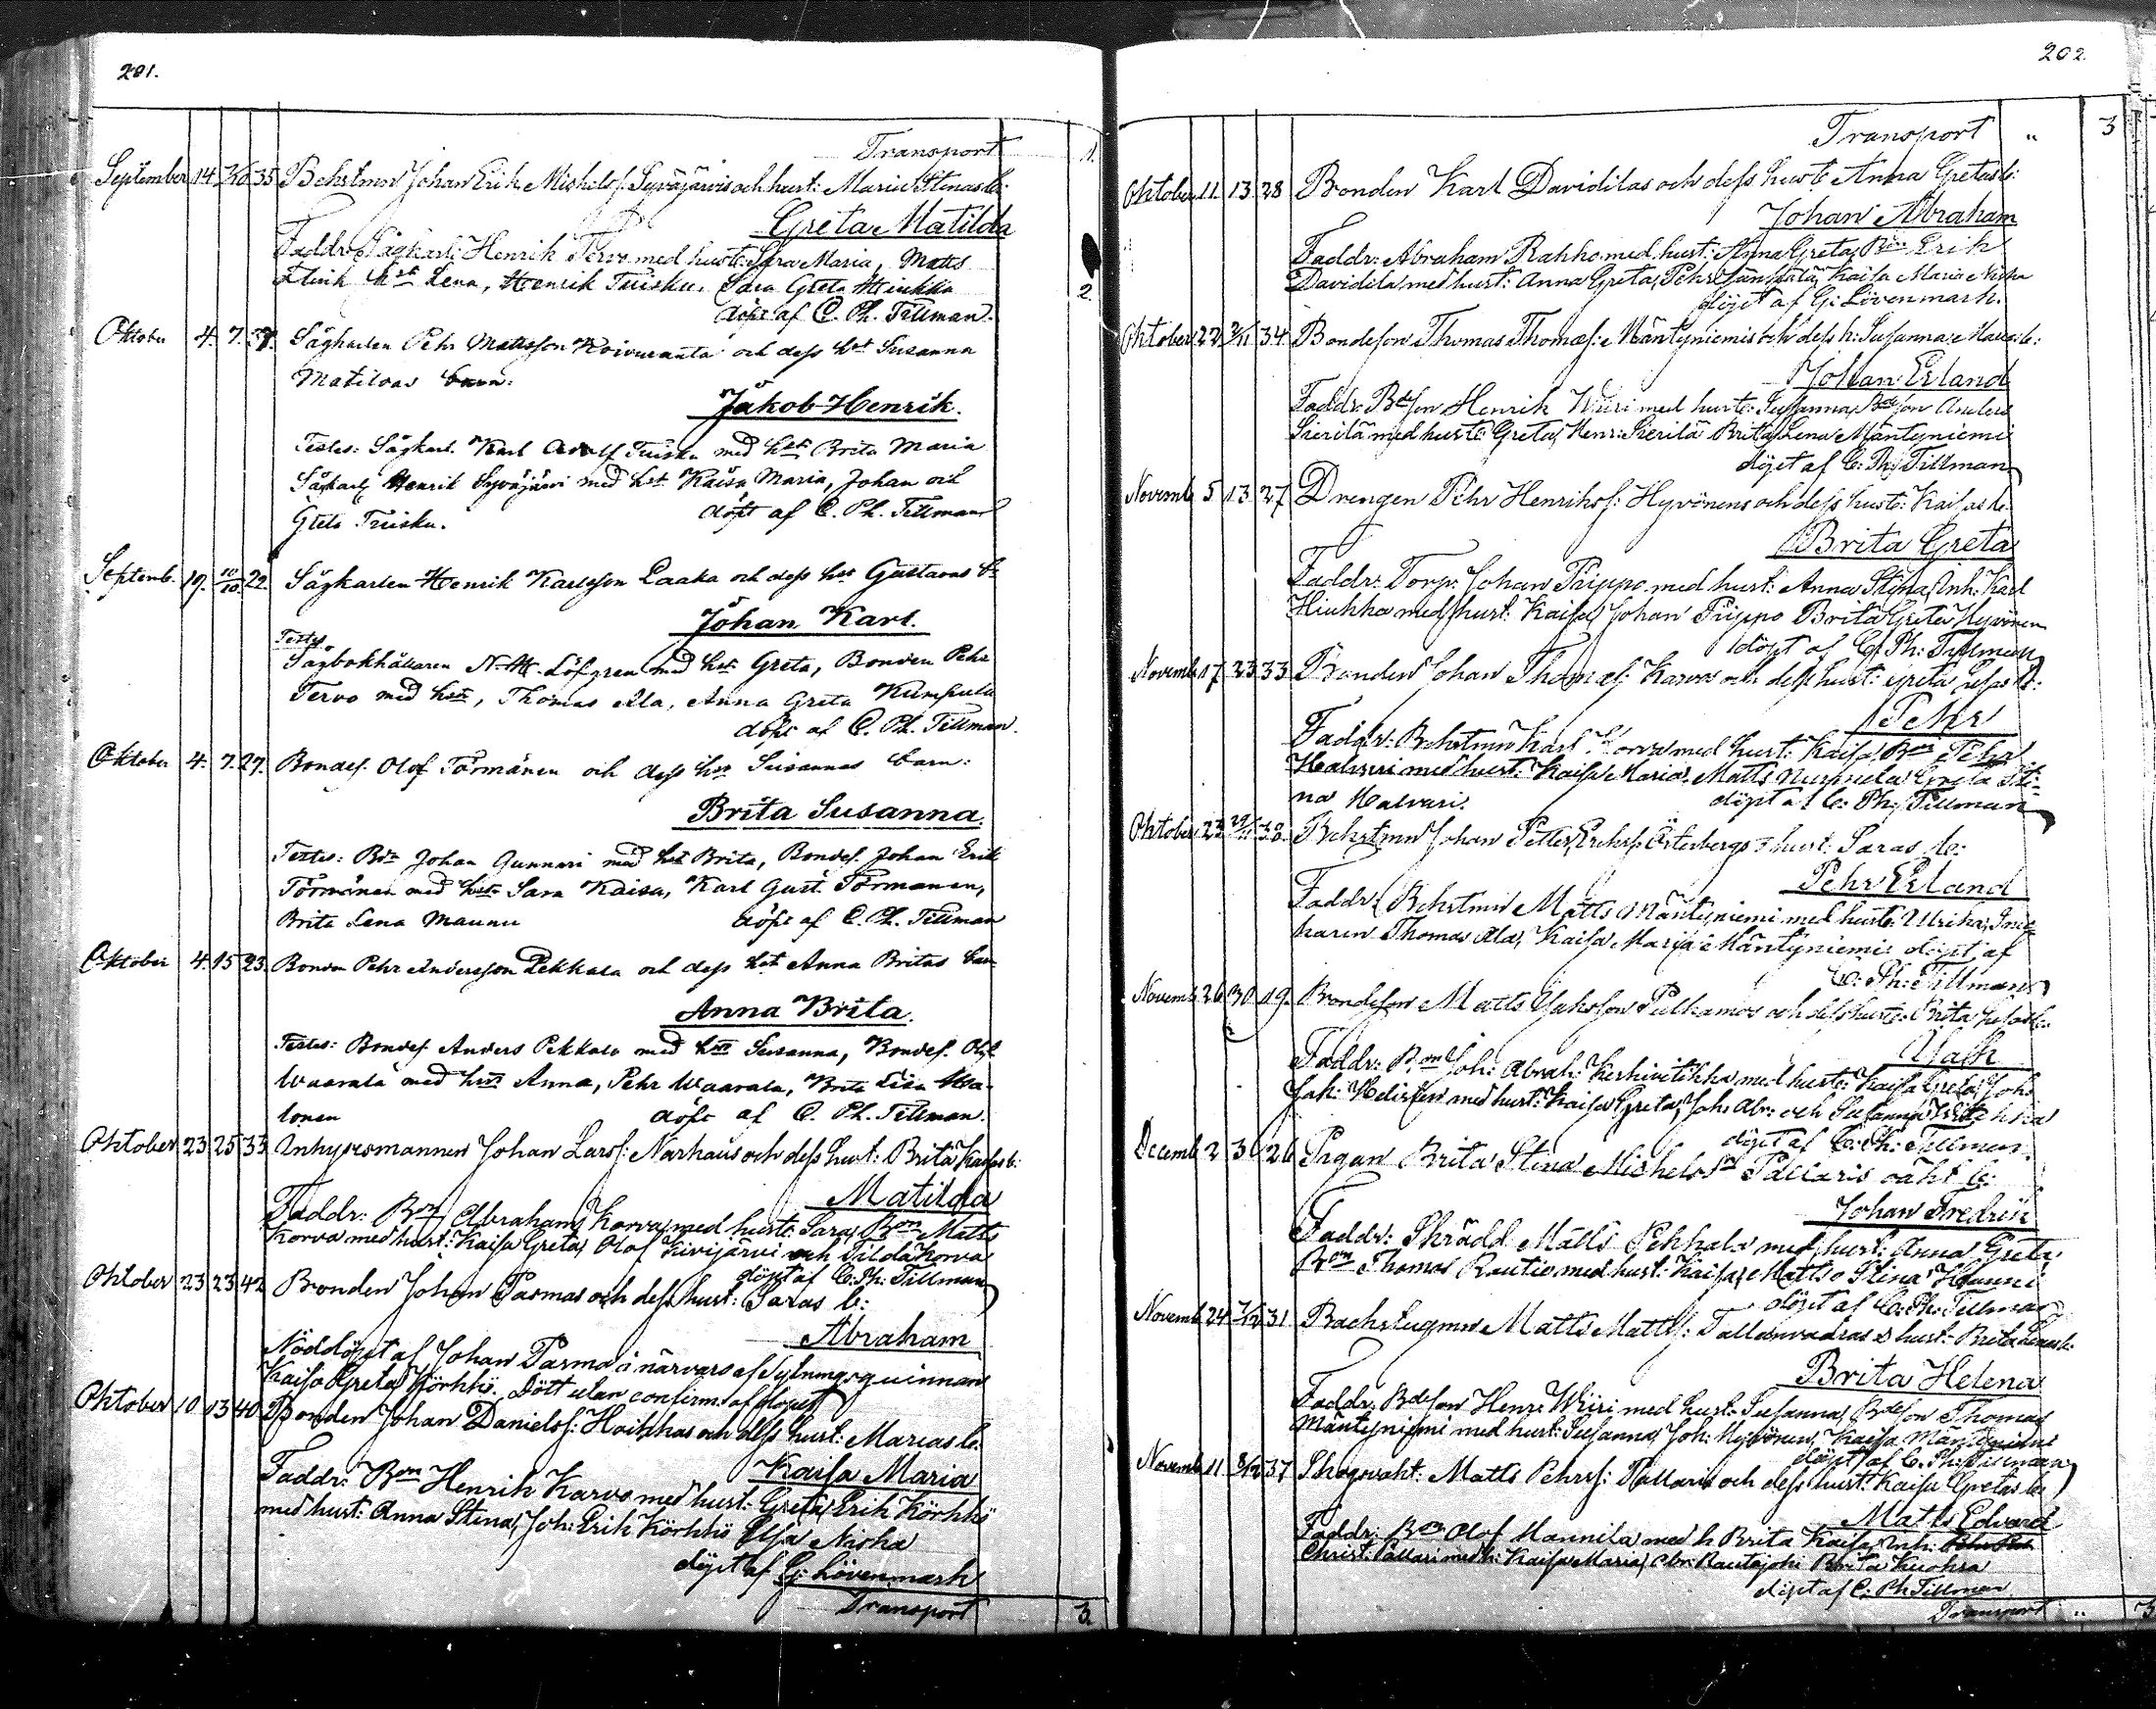 201.
Transport 1.
September 14. 35 Bekstmn Johan Erik Mickelsf. Syväjärvis och hust: Maria Stinas b:
Greta Matilda
Faddr: Sågkarl: Henrik Tervo med hust: Sara Maria, Matts
Flink hst Lena, Henrik Tuisku, Sara Greta Hiukka 2.
döpt af C. Ph. Tillman.
Oktober 4. 7. Sågkarlen Pehr Mattsson Koivuranta och dess hst Susanna
Matildas barn:
Jakob Henrik.
Testes: Sågkarl. Karl Adolf Tuisku med hst Brita Maria
Sågkarl Henrik Syväjärvi med hst Kaisa Maria, Johan och
Greta Tuisku. döpt af C. Ph. Tillman
Septemb. 19. 10/10. 22. Sågkarlen Henrik Karlsson Laaka och dess hst Gustavas bn
Johan Karl.
Testes
Sågbokhållaren Löfgren med hst Greta, Bonden Pehr
Tervo med hst, Thomas Ala, Anna Greta Kumpula
döpt af C. Ph. Tillman.
Oktober 4. 7. 27. Bondes. Olof Törmänen och dess hst Susannas barn:
Brita Susanna.
Testes: Bdn Johan Gunnari med hst Brita, Bondes. Johan Erik
Törmänen med hst Sara Kaisa, Karl Gust. Törmänen,
Brita Lena Maunu döpt af C. Ph. Tillman
Oktober 4. 15 23. Bonden Pehr Andersson Pekkala och dess hst Anna Britas barn
Anna Brita.
Testes: Bondes. Anders Pekkala med hst Susanna, Bondes. Olof
Waarala med hst Anna, Pehr Waarala, Brita Lisa
lonen döpt af C. Ph. Tillman.
Oktober 23 25 33 Inhysesmannen Johan Larsf: Narhaus och dess hust: Brita Kaisas b:
Matilda
Faddr: Bon Abraham Korva med hust: Sara, Bon Matts
Korva med hust: Kaisa Greta, Olof Kivijärvi och Tilda Korva
döpt af C. Ph. Tillman
Oktober 23 23 42 Bonden Johan Parmas och dess hust: Saras b:
Abraham
Nöddöpt af Johan Parma i närvaro af sytningsquinnan
Kaisa Greta Körkkö. Dött utan confirm. af dopet
Oktober 10 13 40 Bonden Johan Danielsf: Hoikkas och dess hust: Marias b.
Kaisa Maria
Faddr: Bon Henrik Karvo med hust: Greta, Erik Körkkö
med hust: Anna Stina, Joh: Erik Körkkö Elsa Niska
döpt af G: Lövenmark
Transport 3.
202.
Transport " 3
Oktober 11. 13. 28 Bonden Karl Davidilas och dess hust: Anna Gretas b:
Johan Abraham
Faddr: Abraham Rahko med hust: Anna Greta, Bon Erik
Davidila med hust: Anna Greta, Pehr Kaisa Maria Niska
döpt af G: Lövenmark.
Oktober 22 2/11 34 Bondeson Thomas Thomasf: Mäntyniemis och dess h: Susanna b:
Johan Erland
Faddr: Bdeson Henrik Wiiri med hust: Susanna, Bdeson Anders
Sierilä med hust: Greta, Henr: Sierilä Brita Lena Mäntyniemi
döpt af C: Ph: Tillman
Novemb 5 13 27 Drengen Pehr Henriksf: Hyvönens och dess hust: Kaisas b.
Brita Greta
Faddr: Torp: Johan Piippo med hust: Anna Stina, Inh. Karl
Hiukka med hust: Kaisa Johan Piippo Brita Greta Hyvönen
döpt af C. Ph: Tillman
Novemb 17 23 33 Bonden Johan Thomasf: Karvos och dess hust: Greta Lisas b:
Pehr
Faddr: Bekstmn Karl Korva med hust: Kaisa, Bon Pehr
Halvari med hust: Kaisa Maria, Matts Greta Sti-
na Halvari. döpt af C: Ph: Tillman
Oktober 23 29/11 38. Bekstmn Johan Petter Eriksf: Österbergs hust: Saras b:
Pehr Erland
Faddr: Bekstmn Matts Mäntyniemi med hust: Ulrika,
karen Thomas Ala, Kaisa Maria Mäntyniemi döpt af
C: Ph: Tillman
Novemb 26 30 19. Bondeson Matts Jaksson Pulkamos och dess hust: Brita Lisas b.
Isak
Faddr: Bon Joh: Abrah: Keskiviitikka med hust: Kaisa Greta, Joh:
Jak: Helisten med hust: Kaisa Greta, Joh. Abr: och Susanna Viitikka
döpt af C: Ph: Tillman.
Decemb 2 3 26 Pigan Brita Stina Michelsdr Pallaris oäkt b:
Johan Fredrik
Faddr: Skrädd Matts Pekkala med hust: Anna Greta,
Bon Thomas Rautio med hust: Kaisa, Matts o Stina Hanni
döpt af C. Ph. Tillman
Novemb 24 7/12 31 Backstugmn Matts Mattsf: Tallavaaras o hust: Brita Lenas b.
Brita Helena
Faddr: Bdeson Henr: Wiiri med hust: Susanna, Bdeson Thomas
Mäntyniemi med hust: Susanna, Joh: Hyvönen, Kaisa Mäntyniemi
döpt af C. Ph: Tillman
Novemb 11 8/12 37 Skogvakt: Matts Pehrsf: Pallaris och dess hust: Kaisa Gretas b:
Matts Edvard
Faddr: Bon Olof Mannila med h. Brita Kaisa, Inh:
Christ: Pallari med h: Kaisa Maria, Abr: Rautajoki Brita Kuoksa
döpt af C: Ph Tillman
Transport " 3